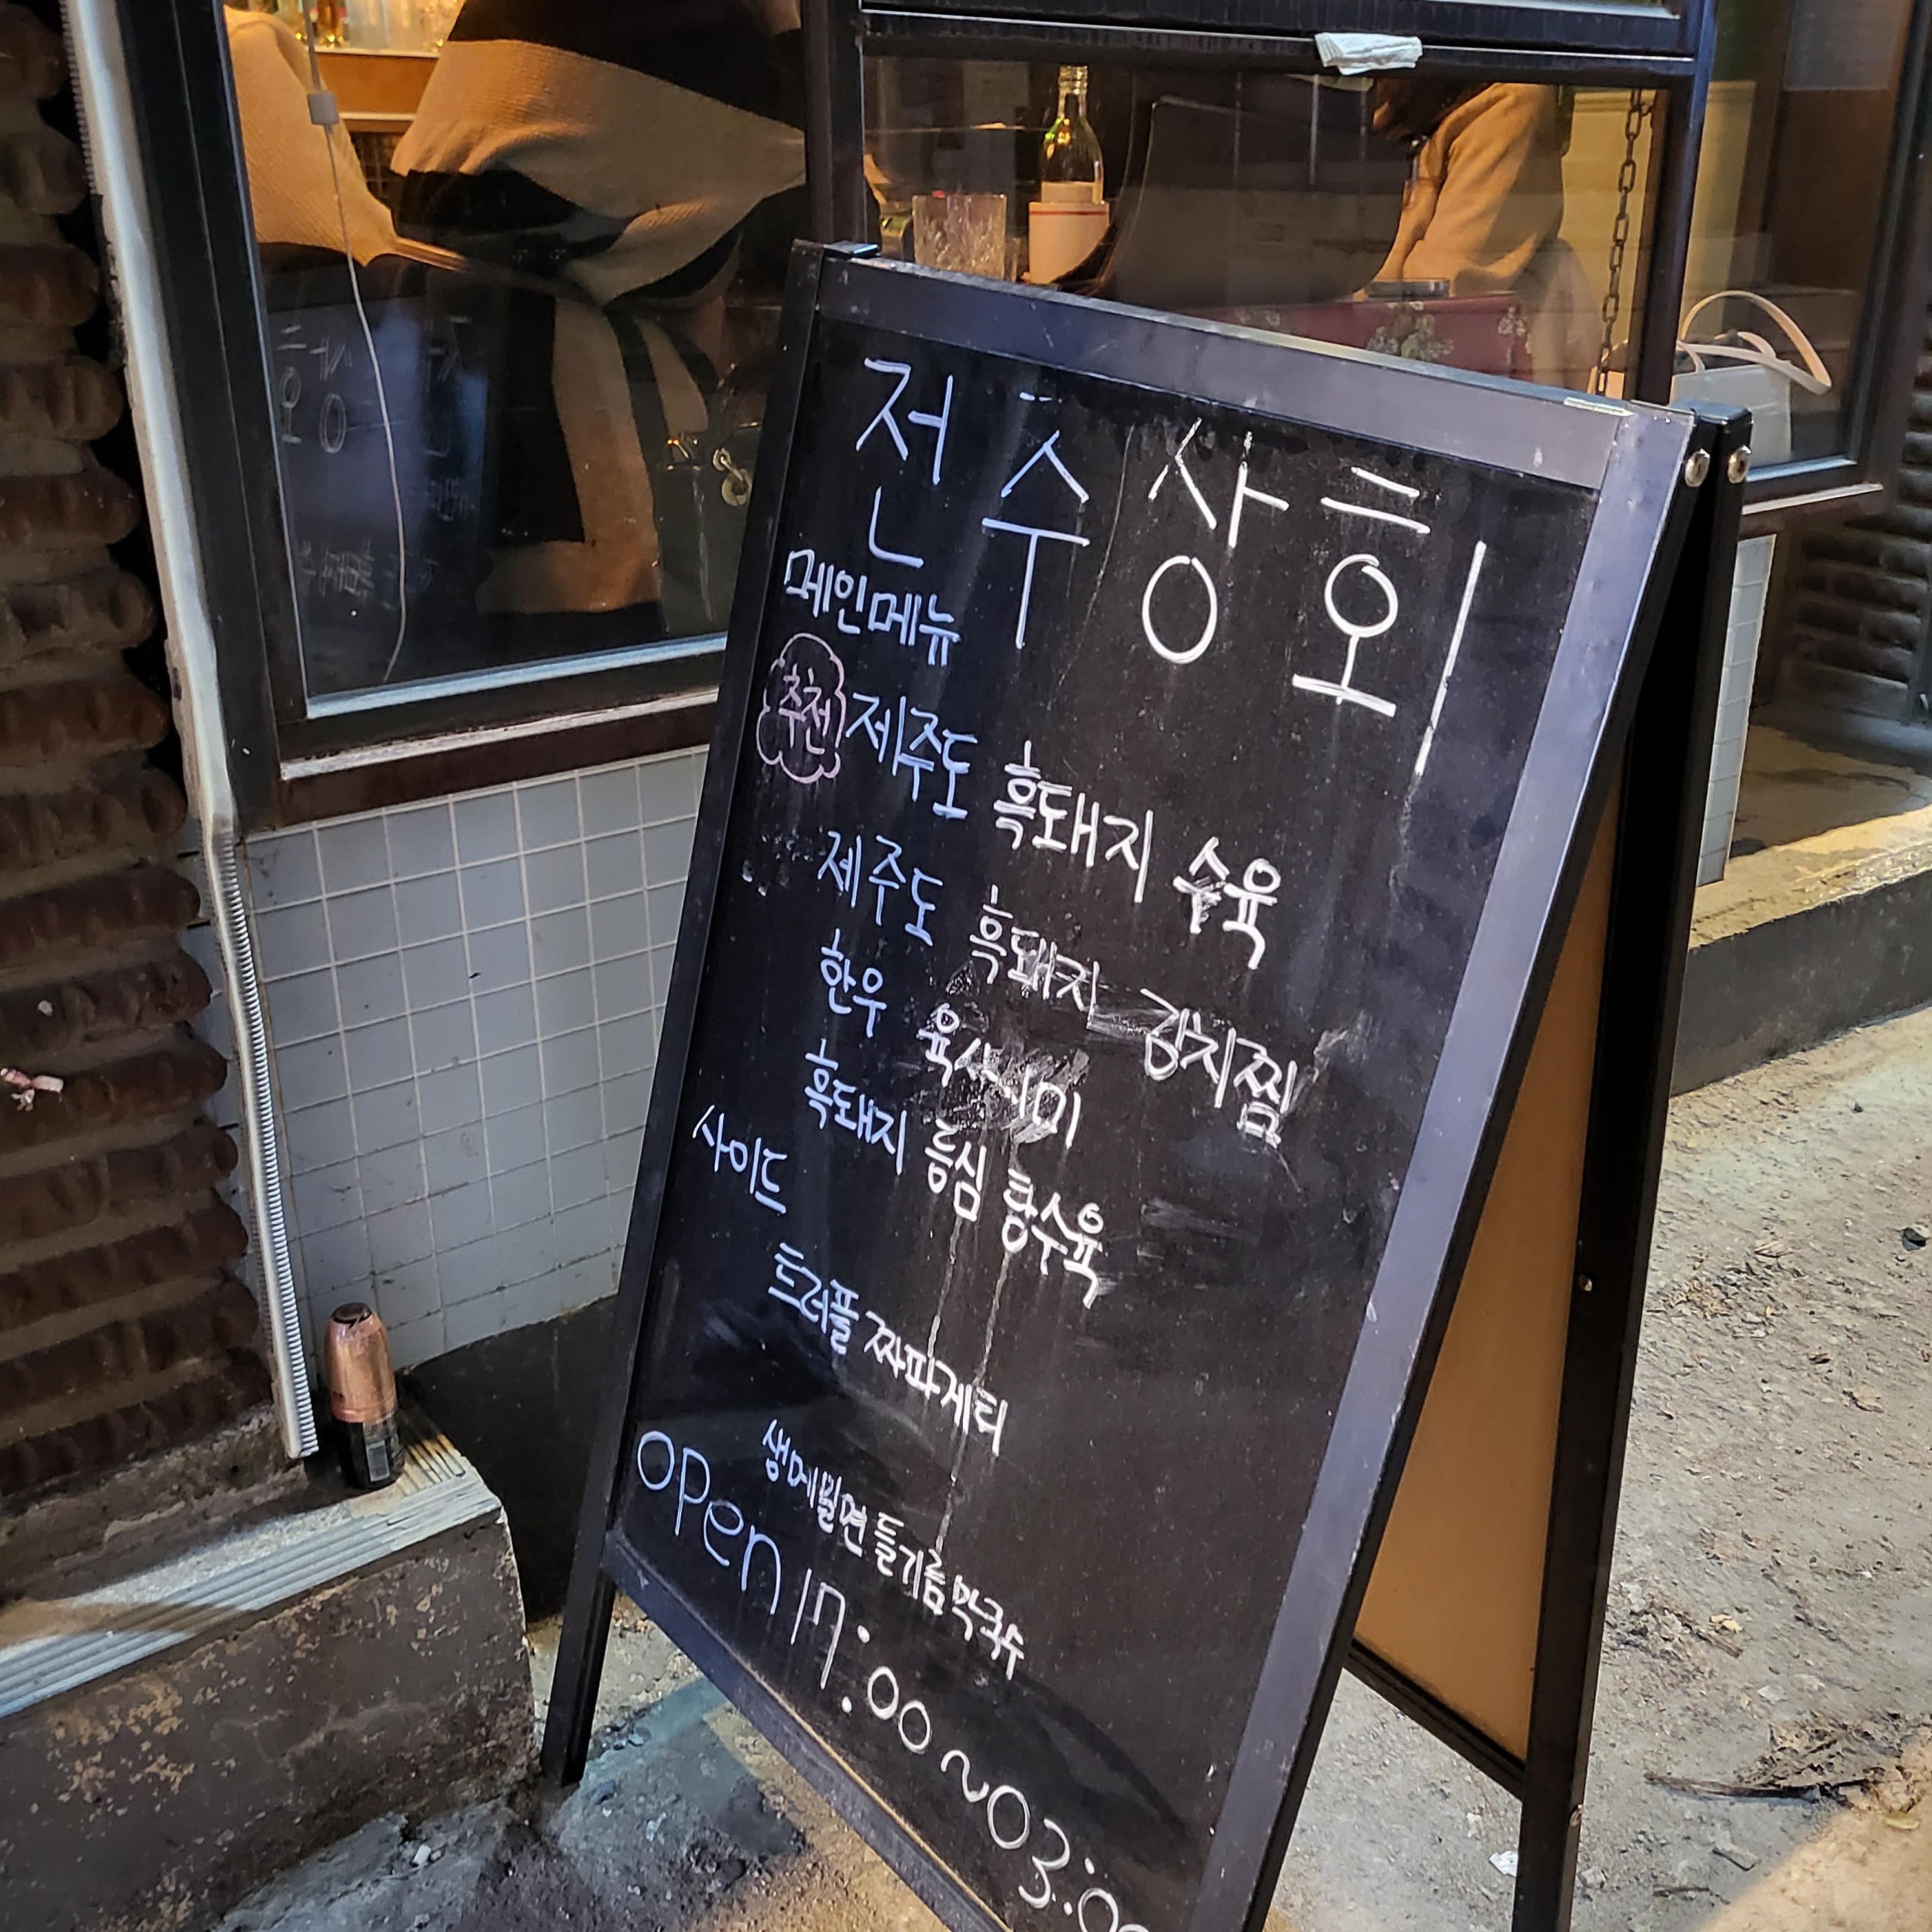 전주상회
메인메뉴
추천 제주도 흑돼지 수육
제주도 흑돼지 김치찜
한우 육사시미
흑돼지 등심 탕수육
사이드
트러플 짜파게티
생메밀면 들기름 막국수
open 17:00~03:00